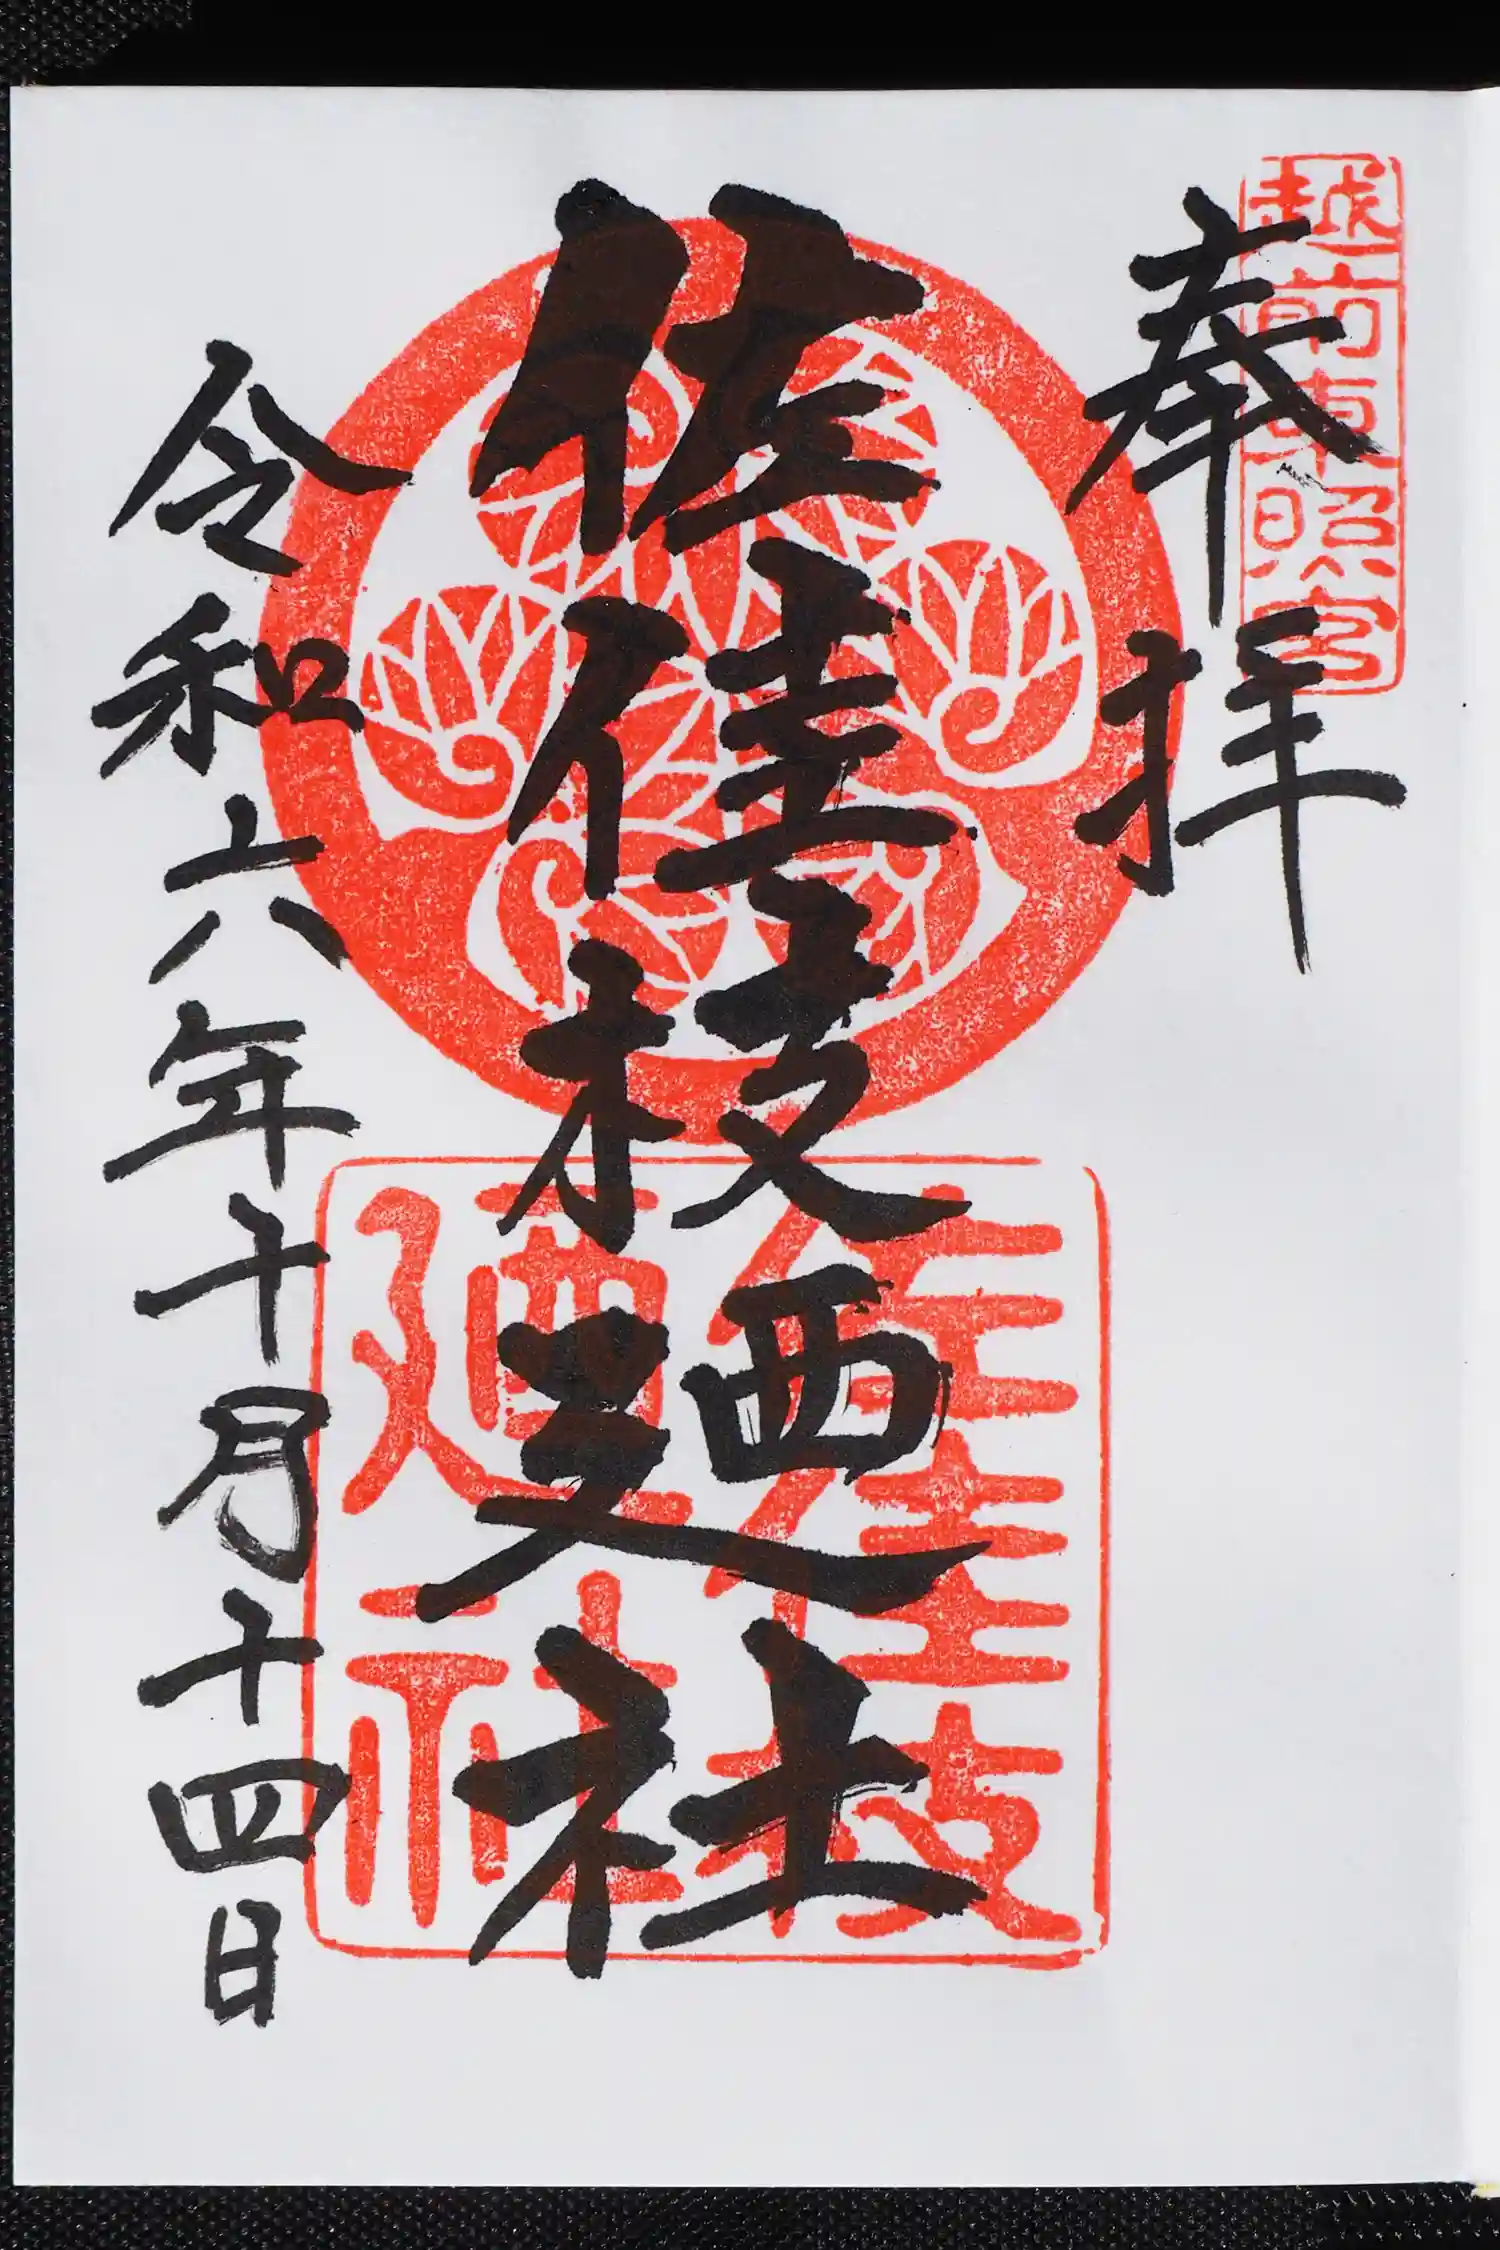 越前東照宮
奉拝
佐佳枝廼社
佐佳枝廼社
令和六年十月十四日